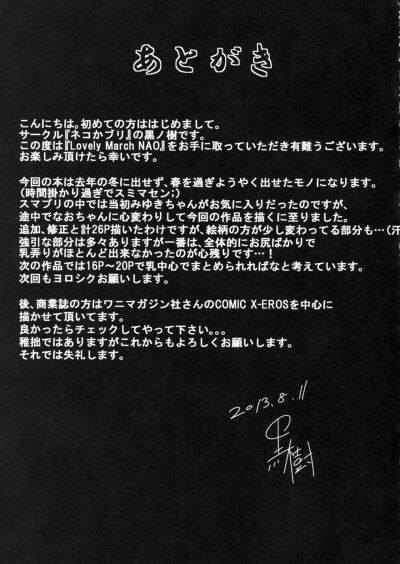 あとがき
こんにちは。初めての方ははじめまして。
サークル『ネコかブリ』の黒ノ樹です。
この度は『Lovely March NAO』をお手に取っていただき有難うございます。
お楽しみ頂けたら幸いです。
今回の本は去年の冬に出せず、春を過ぎようやく出せたモノになります。
（時間掛かり過ぎでスミマセン;）
スマプリの中では当初みゆきちゃんがお気に入りだったのですが、
途中でなおちゃんに心変わりして今回の作品を描くに至りました。
追加、修正と計26P描いたわけですが、絵柄の方が少し変わってる部分も…（汗
強引な部分は多々ありますが一番は、全体的にお尻ばかりで
乳弄りがほとんど出来なかったのが心残りです…！
次の作品では16P～20Pで乳中心でまとめられればなと考えています。
次回もヨロシクお願いします。
後、商業誌の方はワニマガジン社さんのCOMIC X-EROSを中心に
描かせて頂いてます。
良かったらチェックしてやって下さい。。。
雅拙ではありますがこれからもよろしくお願いします。
それでは失礼します。
2013.8.11